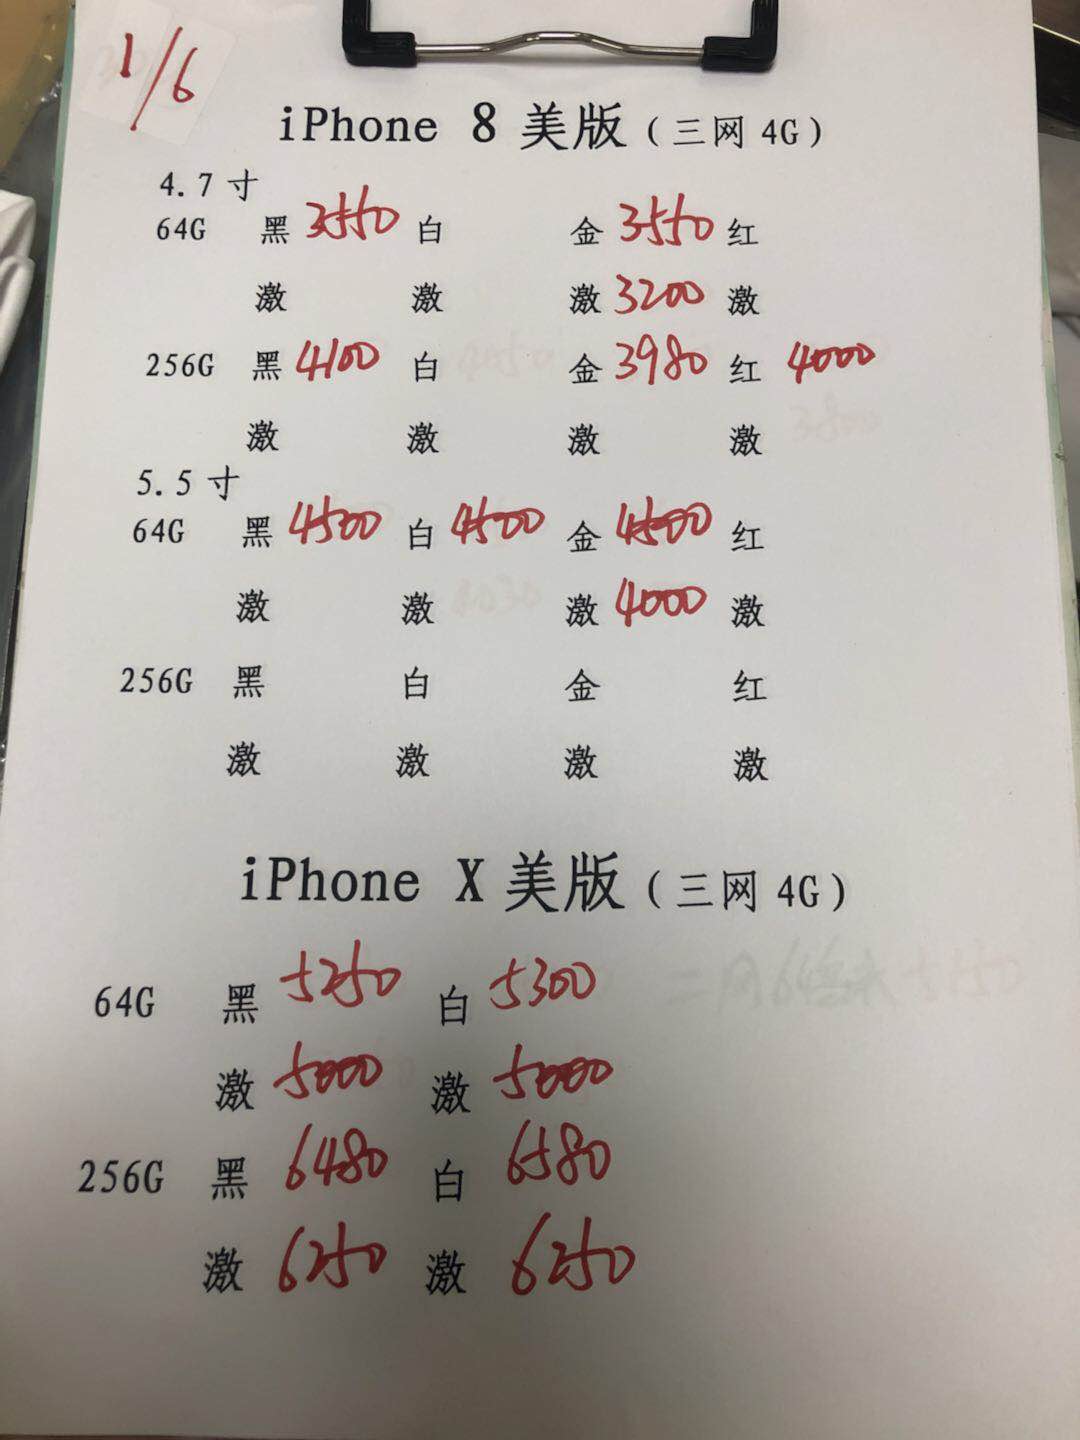 1/6
iPhone 8 美版（三网 4G）
4.7 寸
64G 黑 3550 白 金 3550 红
激 激 激 3200 激
256G 黑 4100 白 金 3980 红 4000
激 激 激 激
5.5 寸
64G 黑 4500 白 4500 金 4500 红
激 激 激 4000 激
256G 黑 白 金 红
激 激 激 激
iPhone X 美版（三网 4G）
64G 黑 5250 白 5300
激 5000 激 5000
256G 黑 6480 白 6580
激 6250 激 6250